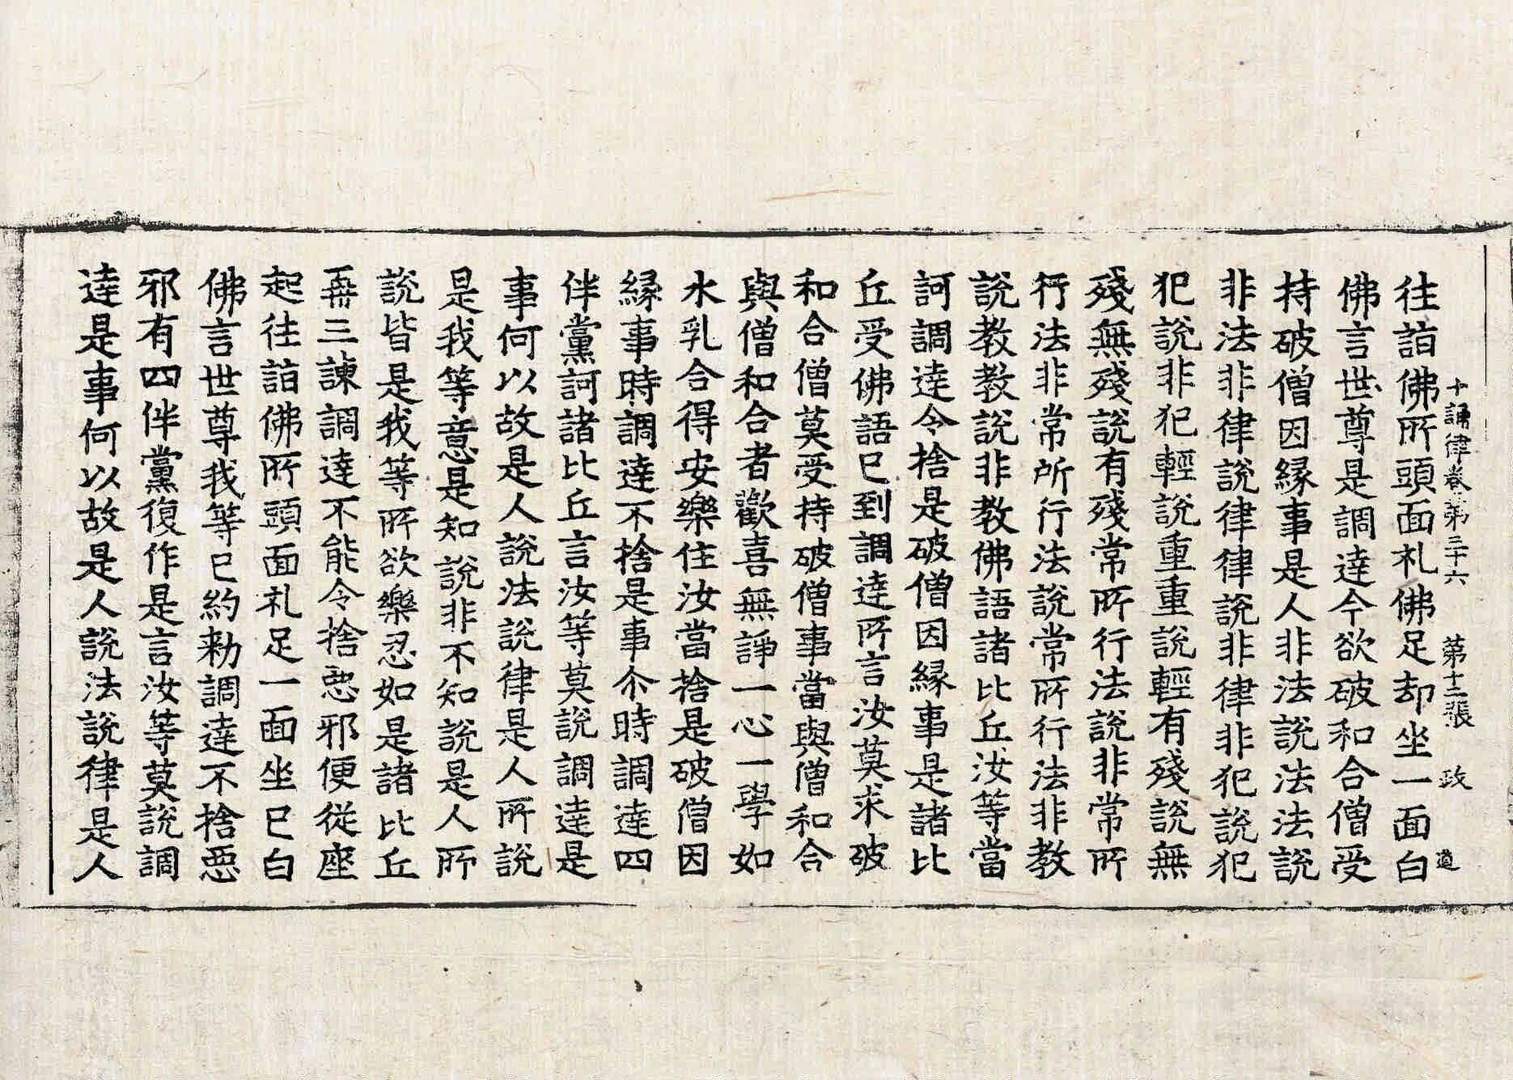 十誦律卷第三十六 第十二張 政 道
往詣佛所頭面礼佛足却坐一面白
佛言世尊是調達今欲破和合僧受
持破僧因緣事是人非法說法法說
非法非律說律律說非律非犯說犯
犯說非犯輕說重重說輕有殘說無
殘無殘說有殘常所行法說非常所
行法非常所行法說常所行法非教
說教教說非教佛語諸比丘汝等當
訶調達令捨是破僧因緣事是諸比
丘受佛語已到調達所言汝莫求破
和合僧莫受持破僧事當與僧和合
與僧和合者歡喜無諍一心一學如
水乳合得安樂住汝當捨是破僧因
緣事時調達不捨是事尒時調達四
伴黨訶諸比丘言汝等莫說調達是
事何以故是人說法說律是人所說
是我等意是知說非不知說是人所
說皆是我等所欲樂忍如是諸比丘
再三諫調達不能令捨惡邪便從座
起往詣佛所頭面礼足一面坐已白
佛言世尊我等已約勑調達不捨惡
邪有四伴黨復作是言汝等莫說調
達是事何以故是人說法說律是人